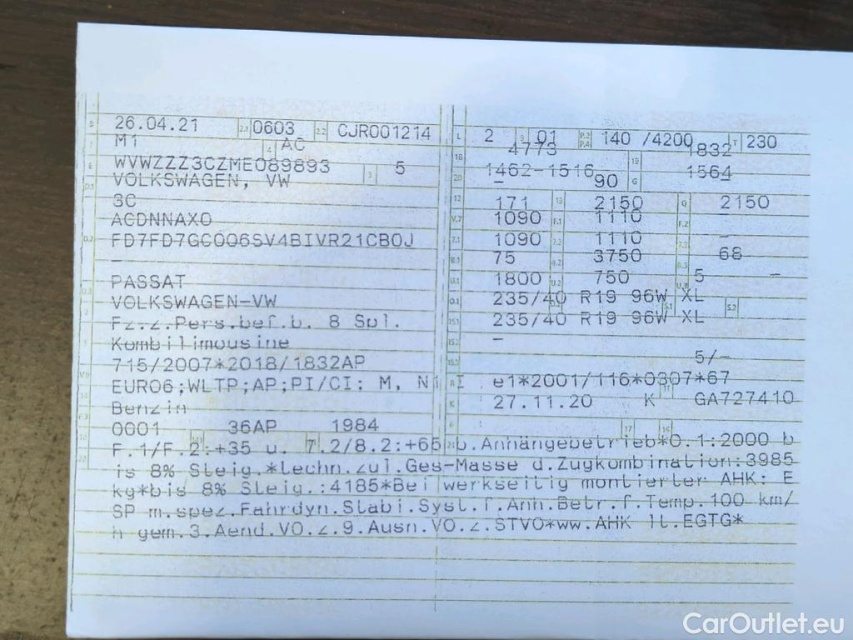 26.04.21 0603 CJR001214
M1 AC
WVWZZZ3CZME089893 5
VOLKSWAGEN, VW
3C
ACDNNAX0
FD7FD7GC006SV4BIVR21CB0J
-
PASSAT
VOLKSWAGEN-VW
Fz.z.Pers.bef.b. 8 Spl.
Kombilimousine
715/2007*2018/1832AP
EURO6;WLTP;AP;PI/CI: M, N1 I
Benzin
0001 36AP 1984
L 2 01 140 /4200 230
4773 1832
1462-1516 1564
- 90
171 2150 2150
1090 1110 -
1090 1110 -
75 3750 68
1800 750 5 -
235/40 R19 96W XL
235/40 R19 96W XL
-
5/-
e1*2001/116*0307*67
27.11.20 K GA727410
F.1/F.2:+35 u. 7.2/8.2:+65 b.Anhängebetrieb*O.1:2000 b
is 8% Steig.*Techn.zul.Ges-Masse d.Zugkombination:3985
kg*bis 8% Steig.:4185*Bei werkseitig montierter AHK: E
SP m.spez.Fahrdyn.Stabi.Syst.f.Anh.Betr.f.Temp.100 km/
h gem.3.Aend.VO.z.9.Ausn.VO.z.STVO*ww.AHK lt.EGTG*
CarOutlet.eu